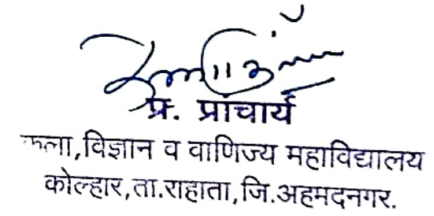 प्र. प्राचार्य
कला,विज्ञान व वाणिज्य महाविद्यालय
कोल्हार,ता.राहाता,जि.अहमदनगर.